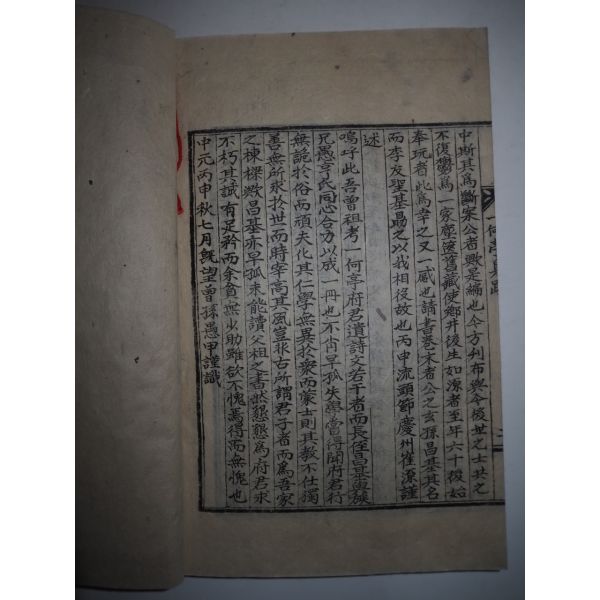 中斯其為斷案公者歟是編也今方刊布與令後世之士共之
不復鬱為一家塵篋舊藏使鄉井後生如源者至年六十後始
奉玩者此為幸之又一感也請書卷末者公之玄孫昌基其名
而李友聖基勗之以我相役故也丙申流頭節慶州崔源謹
述
嗚呼此吾曾祖考一何亭府君遺詩文若干者而長侄昌基與族
兄愚亨氏同心合力以成一冊也不肖早孤失學嘗得聞府君行
無詭於俗而頑夫化其仁學無異於衆而蒙士則其教不仕獨
善無所求於世而時宰高其風豈非古所謂君子者而為吾家
之棟樑歟昌基亦早孤未能讀父祖之書然懇懇為府君求
不朽其誠有足矜而余貧無少助雖欲不愧焉得而無愧也
中元丙申秋七月旣望曾孫愚甲謹識
一何亭